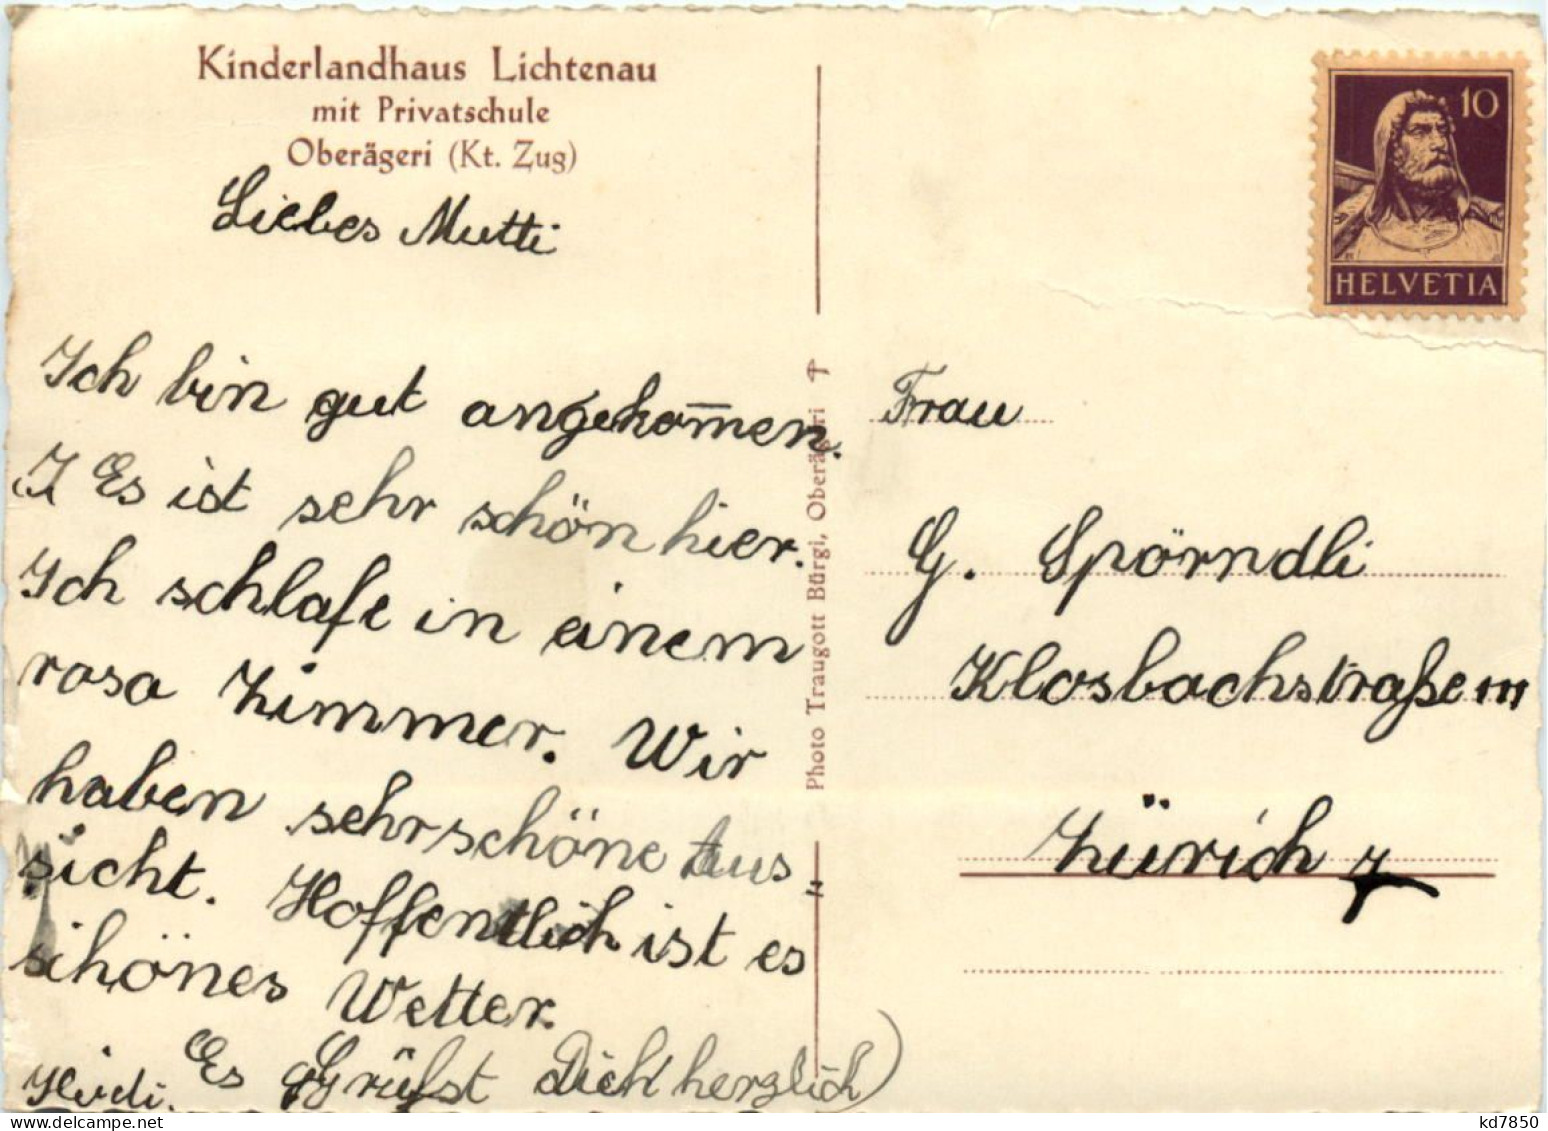 Kinderlandhaus Lichtenau
mit Privatschule
Oberägeri (Kt. Zug)
Liebes Mutti
Ich bin gut angekom̅en.
I Es ist sehr schön hier.
Ich schlafe in einem
rosa Zimmer. Wir
haben sehr schöne Aus
sicht. Hoffentlich ist es
schönes Wetter.
Es Grüßt Dich herzlich
Heidi.
Photo Traugott Bürgi, Oberägeri
10
HELVETIA
Frau
G. Spörndli
Klosbachstraße 111
Zürich 7
kd7850